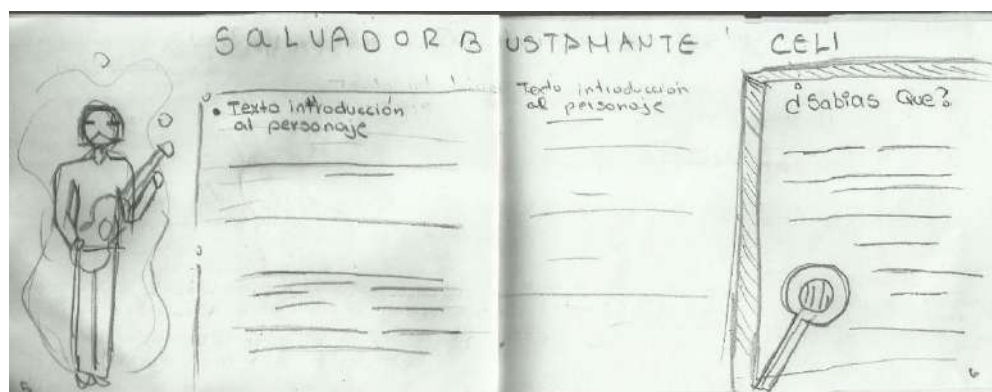 SALVADOR BUSTAMANTE CELI
• Texto introducción
al personaje
Texto introducción
al personaje
¿Sabias Que?
5
6